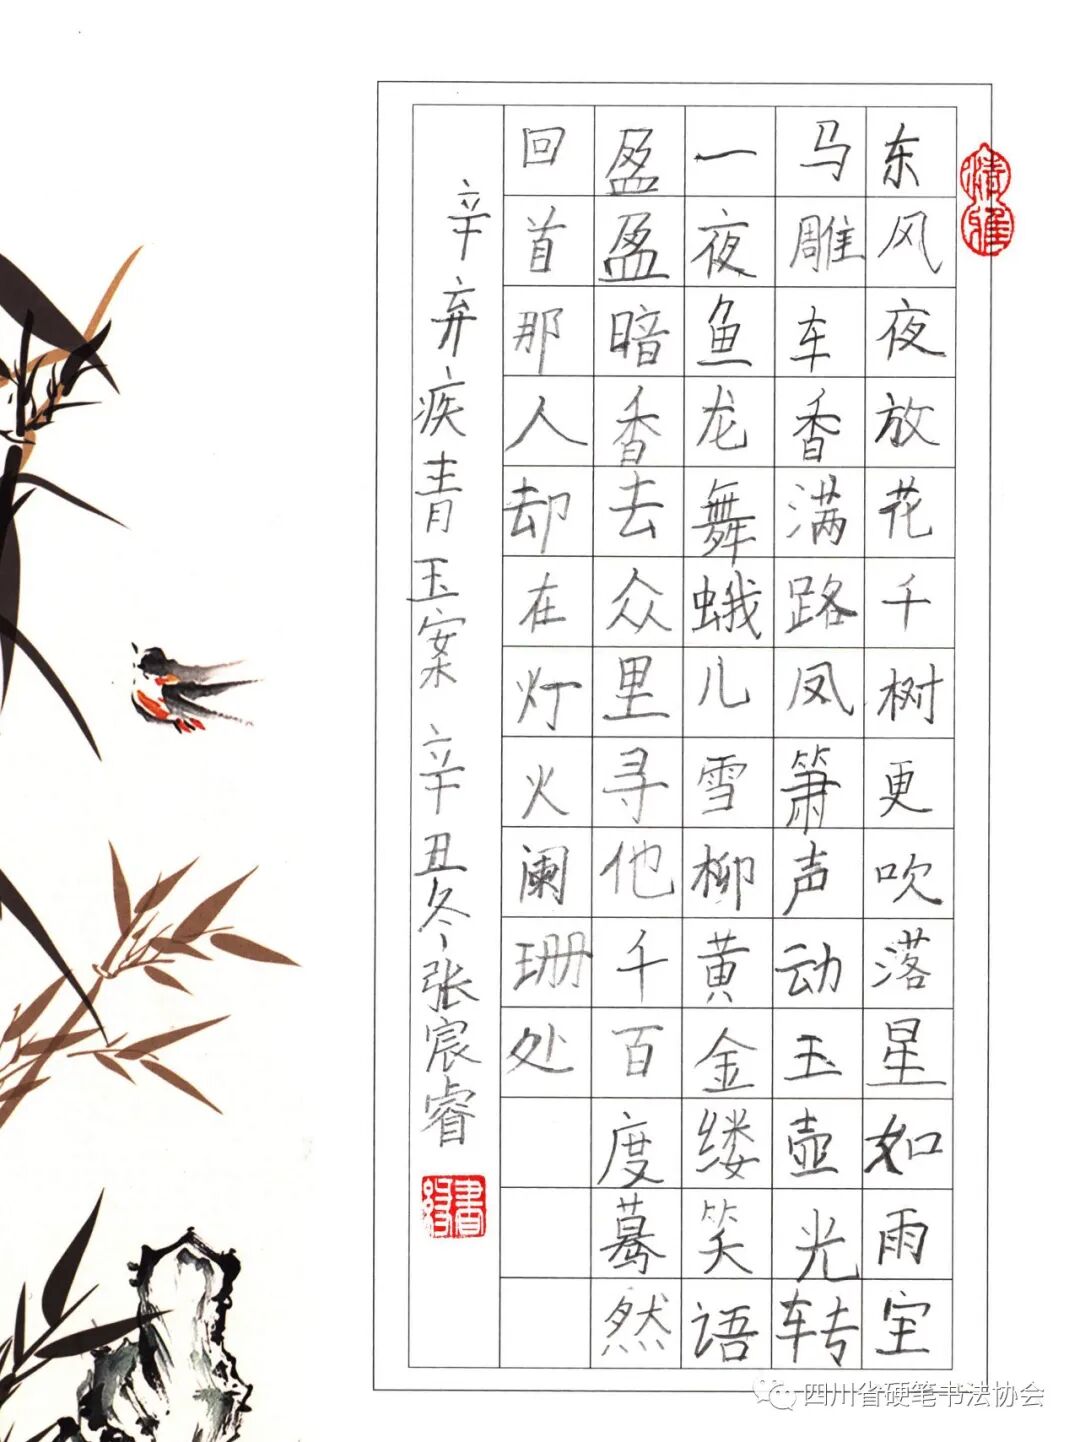 东风夜放花千树更吹落星如雨宝
马雕车香满路凤箫声动玉壶光转
一夜鱼龙舞蛾儿雪柳黄金缕笑语
盈盈暗香去众里寻他千百度蓦然
回首那人却在灯火阑珊处
辛弃疾青玉案 辛丑冬张宸睿
清雅
四川省硬笔书法协会